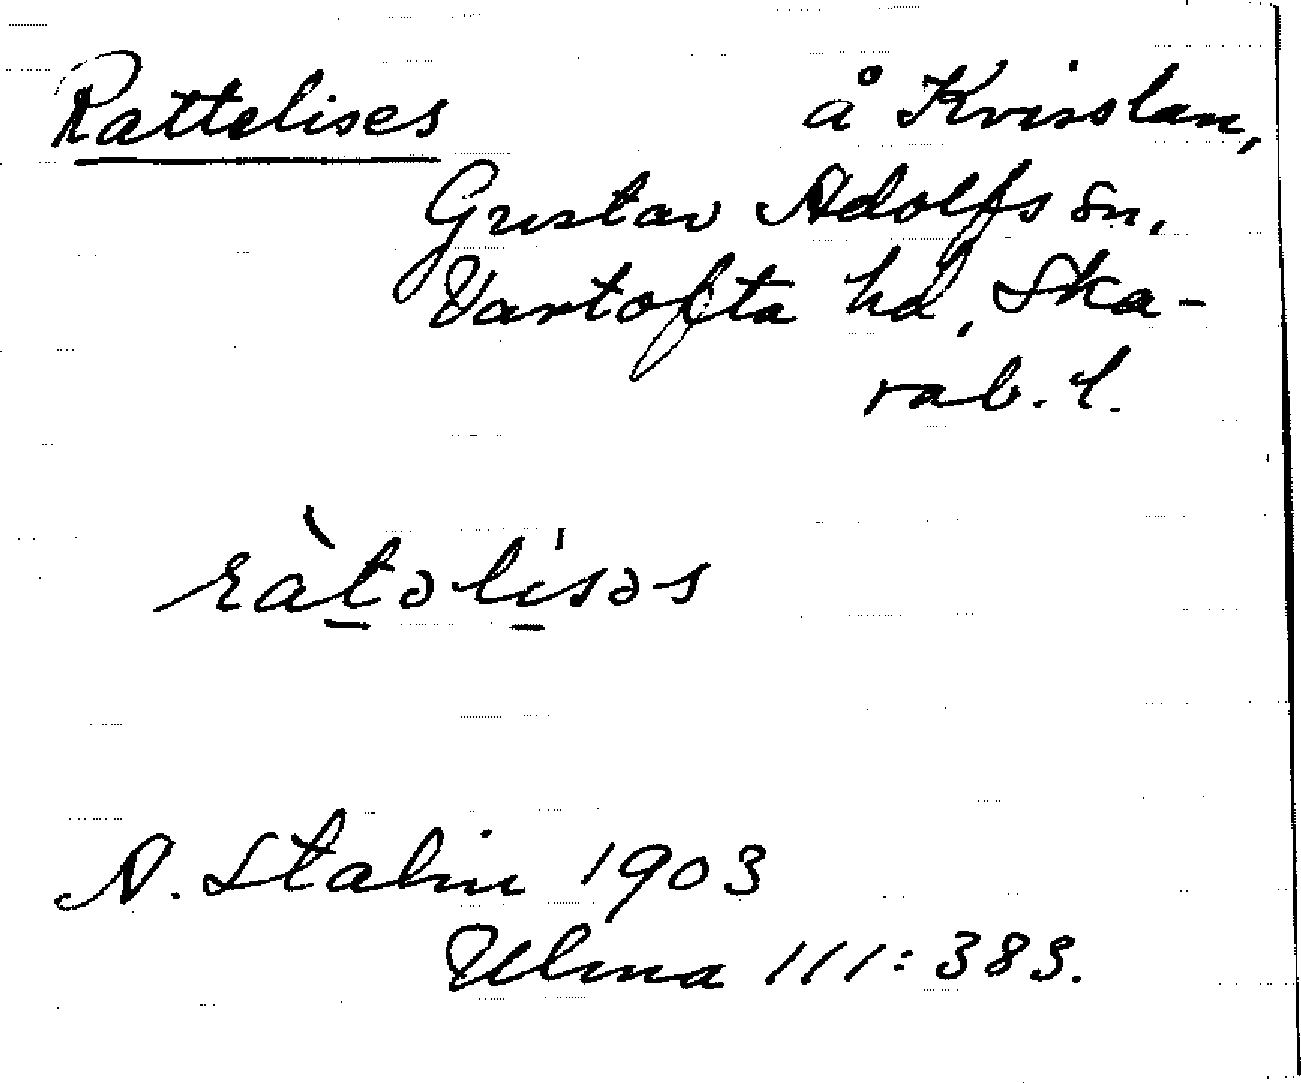 Rattelises å Kvisslan,
Gustav Adolfs sn.
Vartofta hd, Ska-
rab. l.
ràtəlisəs
A. Stalin 1903
Ulma 111:383.